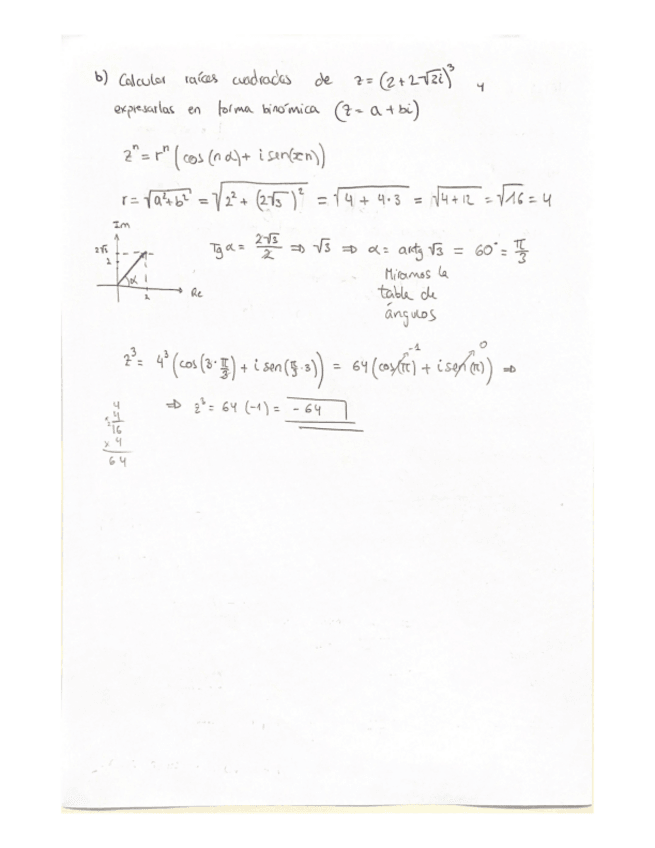 b) Calcular raíces cuadradas de z = (2+2√2i)³ y
expresarlas en forma binómica (z = a + bi)
zⁿ = rⁿ (cos (n α) + i sen(α n))
r = √a²+b² = √2² + (2√3)² = √4 + 4·3 = √4+12 = √16 = 4
Im
2√3
2
α
2
Re
Tg α = 2√3/2 => √3 => α = artg √3 = 60° = π/3
Miramos la
tabla de
ángulos
z³ = 4³ (cos (3·π/3) + i sen (π/3·3)) = 64 (cos(π) + i sen(π)) =>
-1
0
=> z³ = 64 (-1) = - 64
4
x 4
16
x 4
64